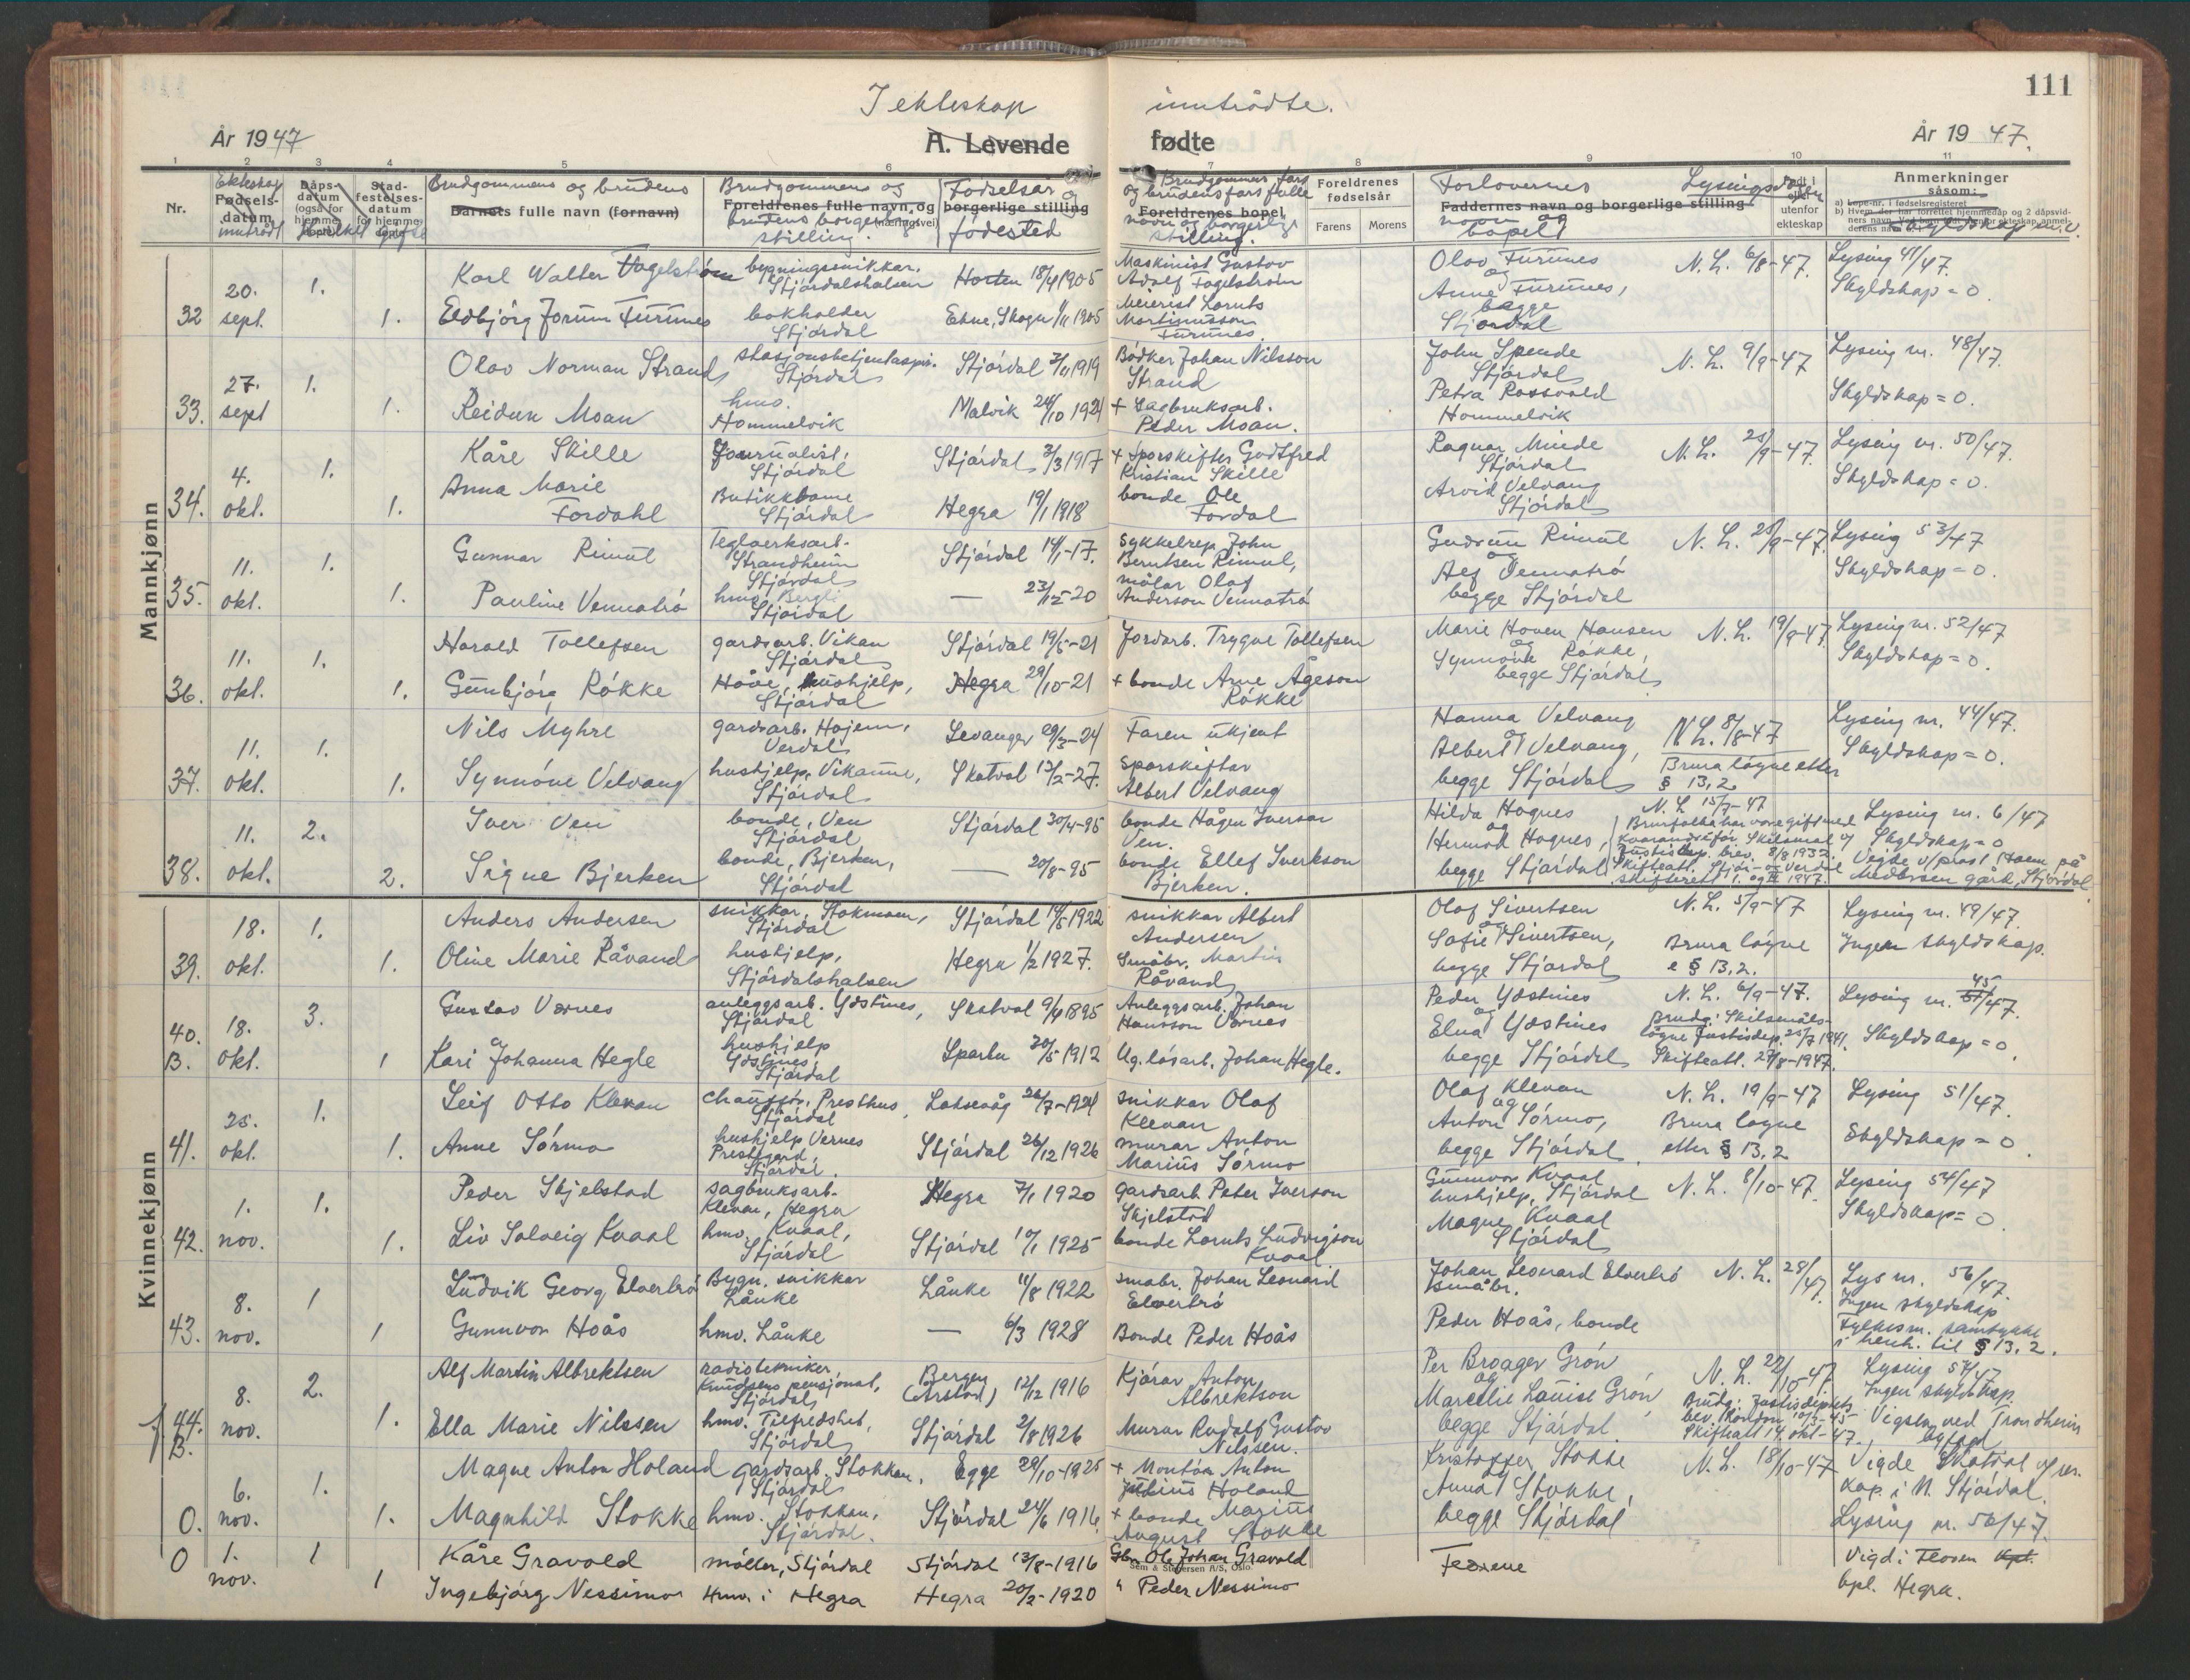 111
I ekteskap inntrådte.
År 1947
A. Levende fødte
År 1947.
1 2 3 4 5 6 7 8 9 10 11
Nr.
Ekteskap Fødselsdatum inntrådt
Dåpsdatum (også for hjemmedøpte)
Stadfestelsesdatum for hjemmedøpte
Brudgommens og brudens
Barnets fulle navn (fornavn)
Brudgommens og
Foreldrenes fulle navn og borgerlige stilling (næringsvei)
brudens borgerlige stilling.
Fødselsår og fødested
Brudgommens fars og brudens fars fulle navn og borgerlige stilling.
Foreldrenes bopel
Foreldrenes fødselsår
Farens Morens
Forlovernes navn og bopel
Faddernes navn og borgerlige stilling
Lysingsdato
Født i eller utenfor ekteskap
Anmerkninger
såsom:
a) Løpe-nr. i fødselsregisteret
Skyldskap m.v.
Mannkjønn
32 20. sept. 1. Karl Walter Fagelstrøm bygningssnikkar. Stjørdalshalsen Horten 18/4 1905 Maskinist Gustav Adolf Fagelstrøm
1. Eldbjørg Jorun Furunes bokholder Stjørdal Ekne, Skogn 1/11 1905 Meierist Lornts Martinusson Furunes
Olav Furunes og Anne Furunes, begge Stjørdal N. L. 6/8-47. Lysing 41/47. Skyldskap = 0.
33. 27. sept 1. Olav Norman Strand stasjonsbetjentaspir. Stjørdal Stjørdal 3/11 1919 Bødker Johan Nilsson Strand
1. Reidun Moan hmo. Hommelvik Malvik 24/10 1921 + Sagbruksarb. Peder Moan.
John Spende Stjørdal Petra Rossvold Hommelvik N. L. 9/9-47 Lysing nr. 48/47. Skyldskap = 0.
34. 4. okt. 1. Kåre Skille Journalist, Stjørdal Stjørdal 3/3 1917 + Sporskifter Godtfred Kristian Skille
1. Anna Marie Fordahl Butikkdame Stjørdal Hegra 19/1 1918 bonde Ole Fordal
Ragnar Minde Stjørdal Arvid Velvang Stjørdal N. L. 25/9-47. Lysing nr. 50/47. Skyldskap = 0.
35. 11. okt. 1. Gunnar Rimul Teglverksarb. Strandheim Stjørdal Stjørdal 14/1-17. sykkelrep. John Berntsen Rimul,
1. Pauline Vennatrø hmo. Bergli Stjørdal — 23/12-20 målar Olaf Anderson Vennatrø
Gudrun Rimul og Alf Vennatrø begge Stjørdal N. L. 25/9-47. Lysing 53/47 Skyldskap = 0.
36. 11. okt. 1. Harald Tollefsen gardsarb. Vikan Stjørdal Stjørdal 19/5-21 Jordarb. Trygve Tollefsen
1. Gunbjørg Røkke Høve, hushjelp, Stjørdal Hegra 29/10-21 + bonde Arne Ågeson Røkke
Marie Hoven Hansen og Synnøve Røkke, begge Stjørdal N. L. 19/9-47. Lysing nr. 52/47 Skyldskap = 0.
37. 11. okt. 1. Nils Myhre gardsarb. Hojem, Verdal Levanger 29/3-24 Faren ukjent
1. Synnøve Velvang hushjelp, Vikanne, Stjørdal Skatval 13/2-27. sporskiftar Albert Velvang
Hanna Velvang og Albert Velvang, begge Stjørdal N. L. 8/8-47 Brura løgne etter § 13,2 Lysing nr. 44/47. Skyldskap = 0.
38. 11. okt. 2. Iver Ven bonde, Ven Stjørdal Stjørdal 30/4-95 bonde Hågen Iversar Ven.
2. Signe Bjerken bonde, Bjerken, Stjørdal — 20/8-95 bonde Ellef Sverkson Bjerken.
Hilda Hognes og Hermod Hognes, begge Stjørdal N. L. 15/7-47 Brurfolka har vore gift med kvarandre før. Skilsmål v/ Justisdep. brev. 8/8 1932. Skifteatt. Stjør- og Verdal skifterett 1947. Lysing nr. 6/47 Skyldskap = 0 Vigde v/ prost Hoem på Medbøen gård, Stjørdal.
Kvinnekjønn
39. 18. okt. 1. Anders Andersen snikkar, Stokmoen, Stjørdal Stjørdal 14/5-1922 snikkar Albert Andersen
1. Oline Marie Råvand hushjelp, Stjørdalshalsen Hegra 1/2 1927. Småbr. Martin Råvand
Olaf Sivertsen og Sofie Sivertsen, begge Stjørdal N. L. 5/9-47 Brura løgne e § 13,2. Lysing nr. 49/47. Ingen skyldskap.
40. B. 18. okt. 3. Gustav Værnes anleggsarb. Ydstines, Stjørdal Skatval 9/4 1895 Anleggsarb. Johan Hansson Værnes
1 Kari Johanna Hegle hushjelp Ydstines, Stjørdal Sparbu 20/5 1912 Ug. løsarb. Johan Hegle.
Peder Ydstines og Elna Ydstines begge Stjørdal N. L. 6/9-47. Brudg: Skilsmåls-løgne Justisdep. 25/7 1941. Skifteatt. 27/8-1947. Lysing nr. 45/47. Skyldskap = 0.
41. 25. okt. 1. Leif Otto Klevan chauffør, Presthus, Stjørdal Laksevåg 26/7-1921 snikkar Olaf Klevan
1. Anne Sørmo hushjelp Vernes Prestegard, Stjørdal. Stjørdal 26/12 1926 murar Anton Marius Sørmo
Olaf Klevan og Anton Sørmo, begge Stjørdal. N. L. 19/9-47 Brura løgne etter § 13,2 Lysing 51/47. Skyldskap = 0.
42. 1. nov. 1. Peder Skjelstad sagbruksarb. Klevan, Hegra Hegra 7/1 1920 gardsarb. Peter Iverson Skjelstad
1. Liv Solveig Kvaal hmo. Kvaal, Stjørdal Stjørdal 10/1 1925 bonde Lornts Ludvigson Kvaal
Gunnvor Kvaal hushjelp, Stjørdal Magne Kvaal Stjørdal N. L. 8/10-47. Lysing 54/47 Skyldskap = 0.
43. 8. nov. 1 Ludvik Georg Elverbrø Bygn. snikkar Lånke Lånke 11/8 1922 småbr. Johan Leonard Elverbrø
1 Gunnvor Hoås hmo. Lånke — 6/3 1928 Bonde Peder Hoås
Johan Leonard Elverbrø småbr. Peder Hoås, bonde N. L. 28/ 47. Lys nr. 56/47. Ingen skyldskap Fylkesm. samtykke i henh. til § 13, 2.
44. B. 8. nov. 2. Alf Martin Albrektsen radiotekniker, Knudsens pensjonat, Stjørdal Bergen (Årstad) 12/12 1916 Kjørar Anton Albrektson
1. Ella Marie Nilssen hmo. Tilfredshet, Stjørdal Stjørdal 2/8 1926 Murar Rudolf Gustav Nilssen.
Per Broager Grøn og Marcelie Louise Grøn begge Stjørdal. N. L. 22/10-47 Brudg: Justisdeptets bev. Skifteatt 14. okt-47. Lysing 57/47 Ingen skyldskap Vigslen ved Trondheim byfogd
0. 6. nov. 1. Magne Anton Holand gardsarb. Stokkan, Stjørdal Egge 29/10-1925 + Montør Anton Julius Holand
1. Magnhild Stokke hmo. Stokkan, Stjørdal. Stjørdal 24/6 1916. + bonde Marius August Stokke
Kristoffer Stokke Anna Stokke, begge Stjørdal N. L. 18/10-47 Vigde Skatval v/ res. kap. i N. Stjørdal. Lysing nr. 50/47.
0 1. nov. 1 Kåre Gravold møller, Stjørdal Stjørdal 13/8-1916 Gbr. Ole Johan Gravold
1 Ingebjørg Nessimo Hmo. i Hegra Hegra 20/2-1920 " Peder Nessimo
Vigd i Flosen kpl. Hegra.
Sem & Stenersen A/S, Oslo.